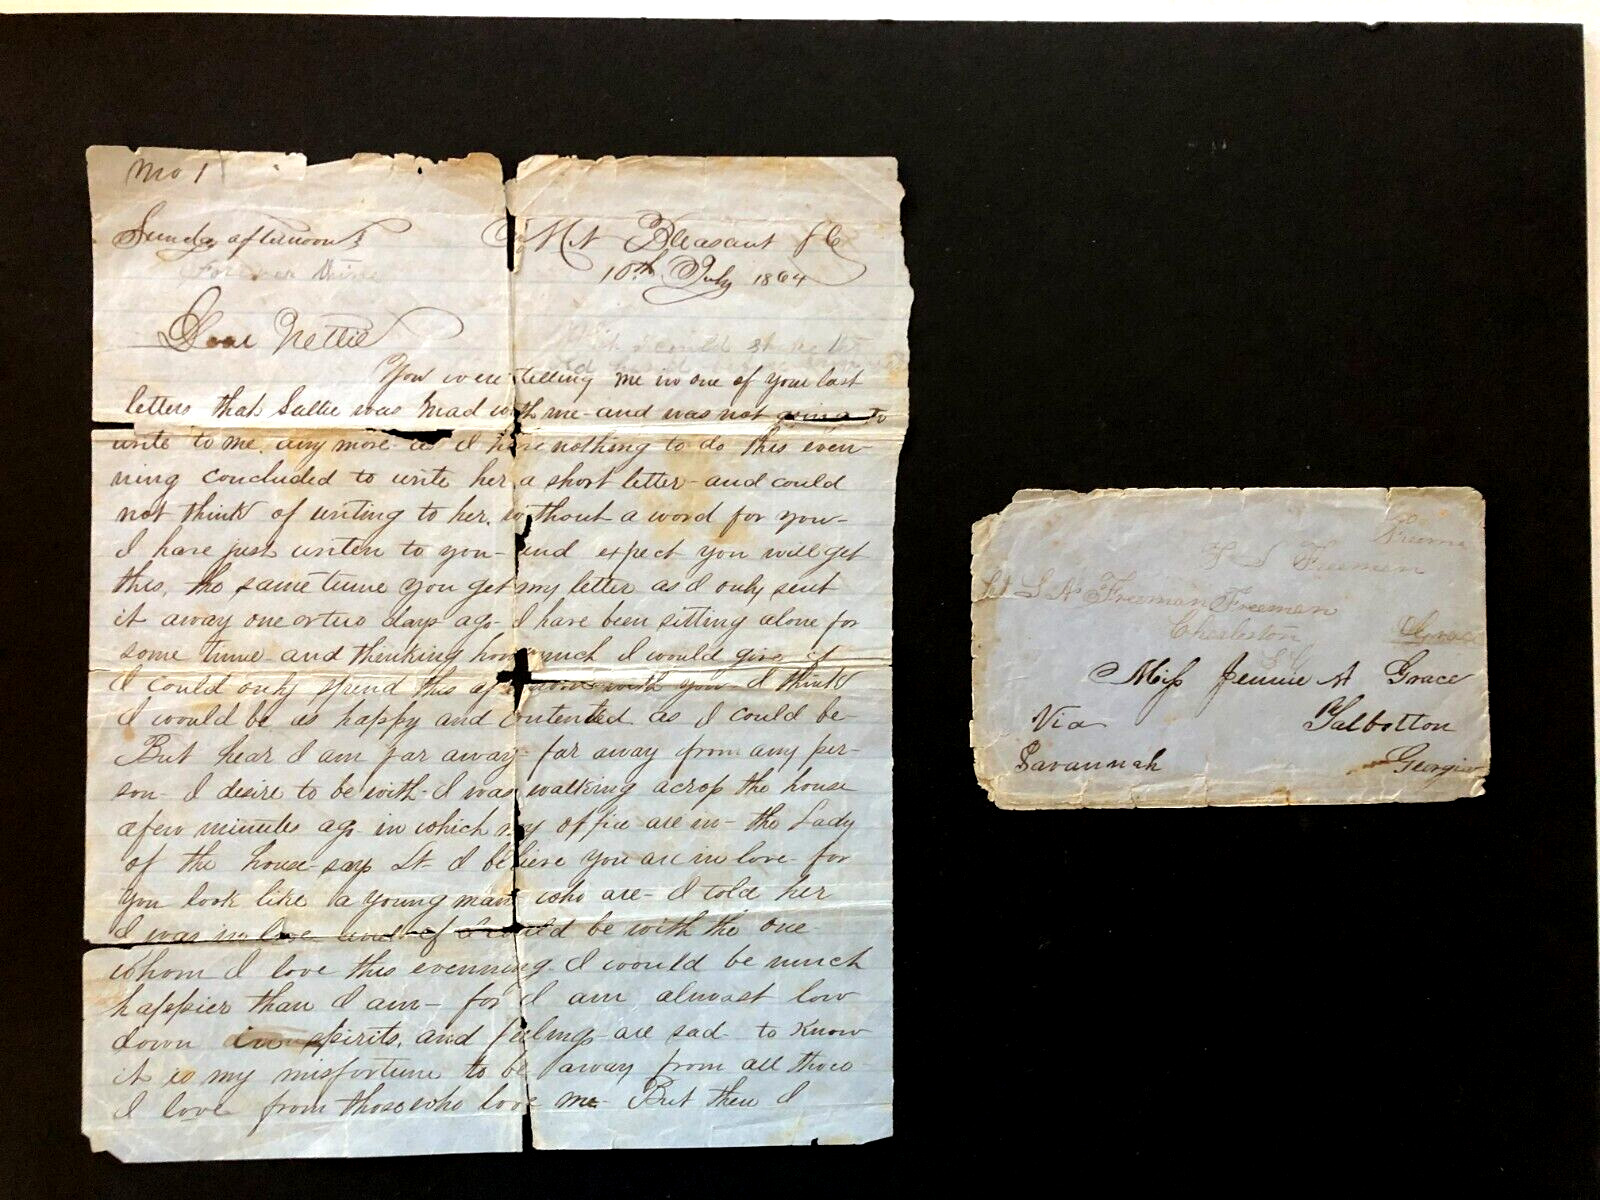 No 1
Sunday afternoon
Mt Pleasant S C
Forever thine
10th July 1864
Dear Nettie
I could
You were telling me in one of your last
letters that Sallie was mad with me - and was not going to
write to me any more - as I have nothing to do this even-
ning concluded to write her a short letter - and could
not think of writing to her, without a word for you -
I have just writen to you - and expect you will get
this, the same time you get my letter as I only sent
it away one or two days ago - I have been sitting alone for
some time - and thinking how much I would give if
I could only spend this with you - I think
I would be as happy and contented as I could be -
But hear I am far away - far away from any per-
son - I desire to be with - I was walking across the house
a few minutes ago in which my office are in - the Lady
of the house - says Lt - I believe you are in love - for
you look like a young man who are - I told her
I was in love and if I could be with the one
whom I love this evenning - I would be much
happier than I am - for I am almost low
down in spirits, and feelings are sad - to know
it is my misfortune to be away from all those
I love from those who love me - But then I
Freeman
Lt S A Freeman Freeman
Charleston
Grace
S C
Miss Jennie A Grace
Via Talbotton
Savannah Georgia